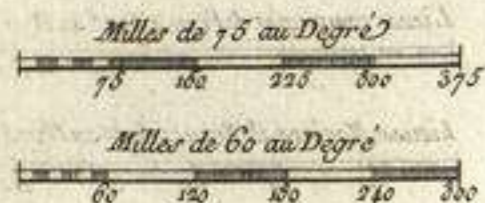 Milles de 75 au Degré
75 160 225 300 375
Milles de 60 au Degré
60 120 180 240 300